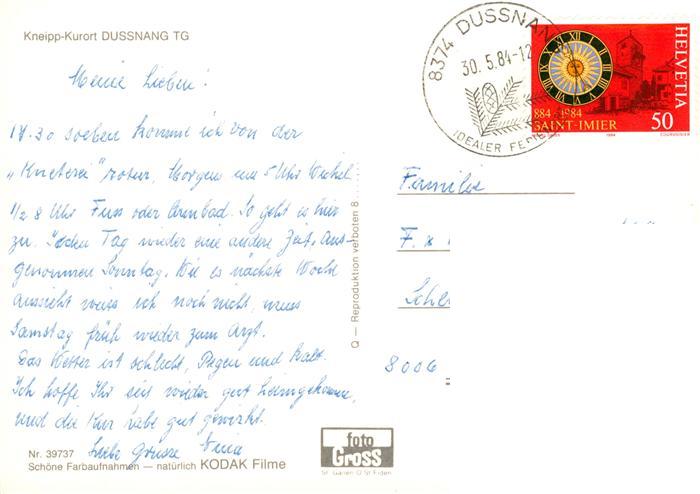 Kneipp-Kurort DUSSNANG TG
Meine Lieben!
17.30 soeben komme ich von der
„Kneterei" retour. Morgen um 5 Uhr Wickel
1/2 8 Uhr Fuss oder Armbad. So geht es hier
zu. Jeden Tag wieder eine andere Zeit, aus-
genommen Sonntag. Wie es nächste Woche
aussieht weiss ich noch nicht, muss
Samstag früh wieder zum Arzt.
Das Wetter ist schlecht, Regen und kalt.
Ich hoffe Ihr seit wieder gut heimgekommen,
und die Kur habe gut gewirkt.
Liebe Grüsse
Nr. 39737
Schöne Farbaufnahmen — natürlich KODAK Filme
Q — Reproduktion verboten 8
foto
Gross
St. Gallen O St. Fiden
8374 DUSSNAN
30.5.84-12
IDEALER FERIE
HELVETIA
884-1984
SAINT-IMIER
50
1984
COURVOISIER
Familie
F.
8006